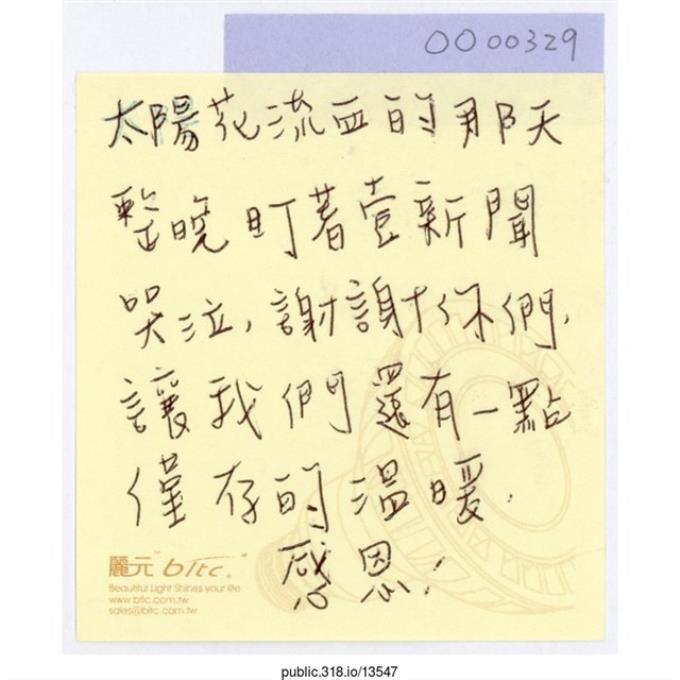 0000329
太陽花流血的那天
整晚盯著壹新聞
哭泣,謝謝你們,
讓我們還有一點
僅存的溫暖.
感恩!
麗元 bltc
Beautiful Light Shines your life
www.bltc.com.tw
sales@bltc.com.tw
public.318.io/13547